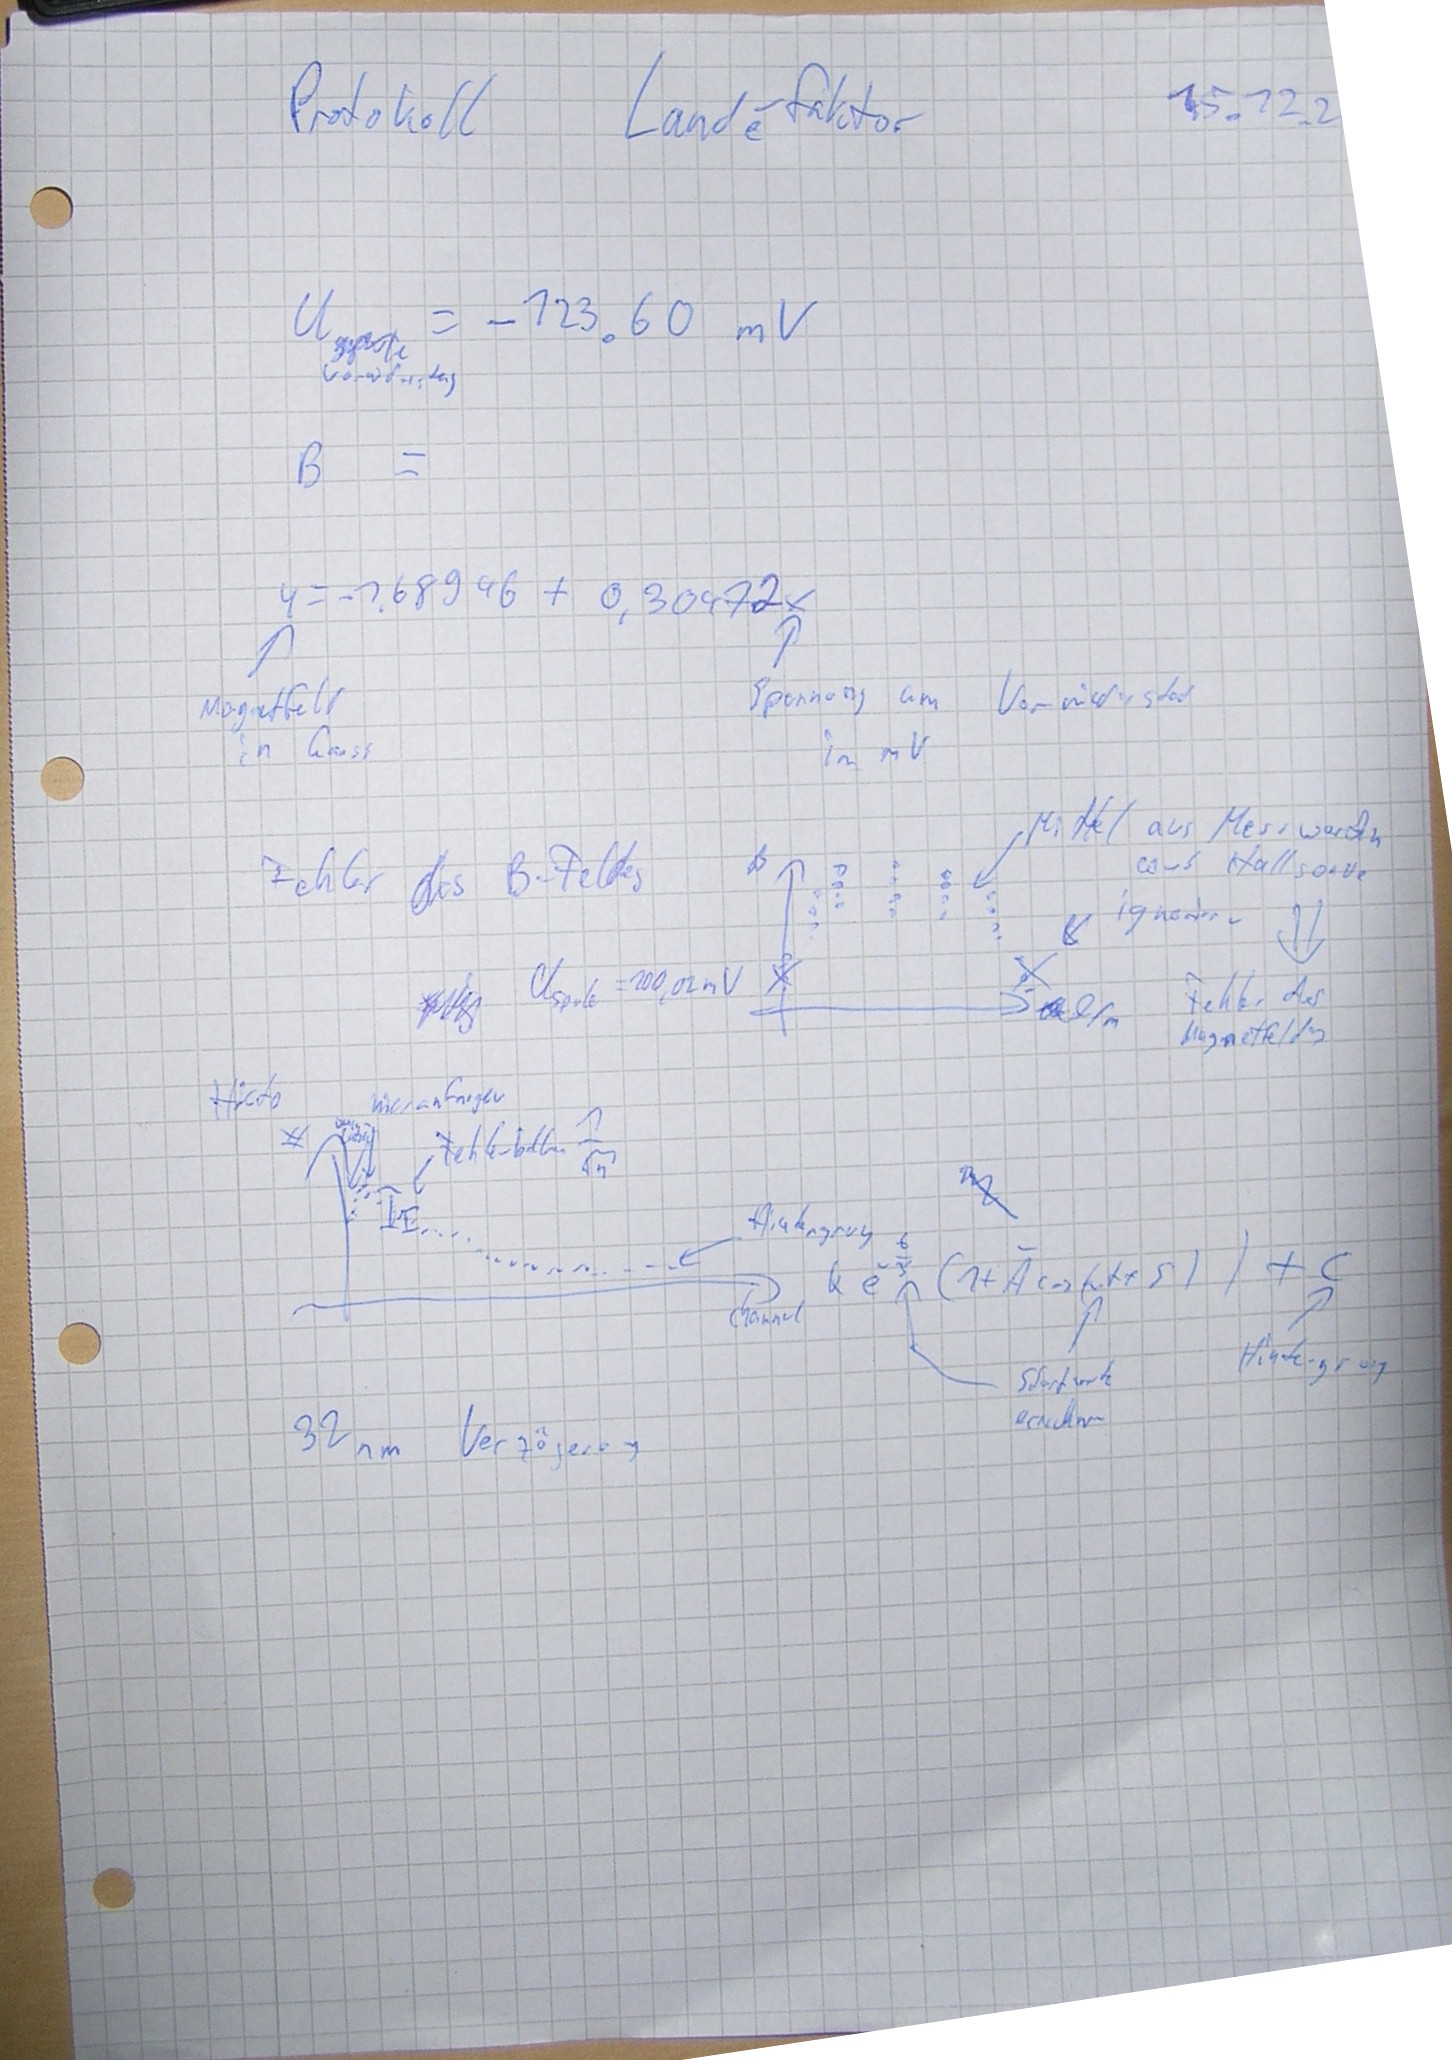 Protokoll Landéfaktor 15.12.2
U = -123.60 mV
Vorwiderstand
B =
y = -1.68946 + 0,30472x
Magnetfeld
in Gauss
Spannung am Vorwiderstand
in mV
Fehler des B-Feldes
B
Mittel aus Messwerten
aus Hallsonde
ignorieren
U Spule = 100,02 mV
l/m
Fehler des
Magnetfeldes
Histo
#
hier anfangen
Fehlerbalken 1/√n
Hintergrund
Channel
k e^-t/τ (1+A cos( t+δ)) + C
Startwerte
Hintergrund
32 nm Verzögerung